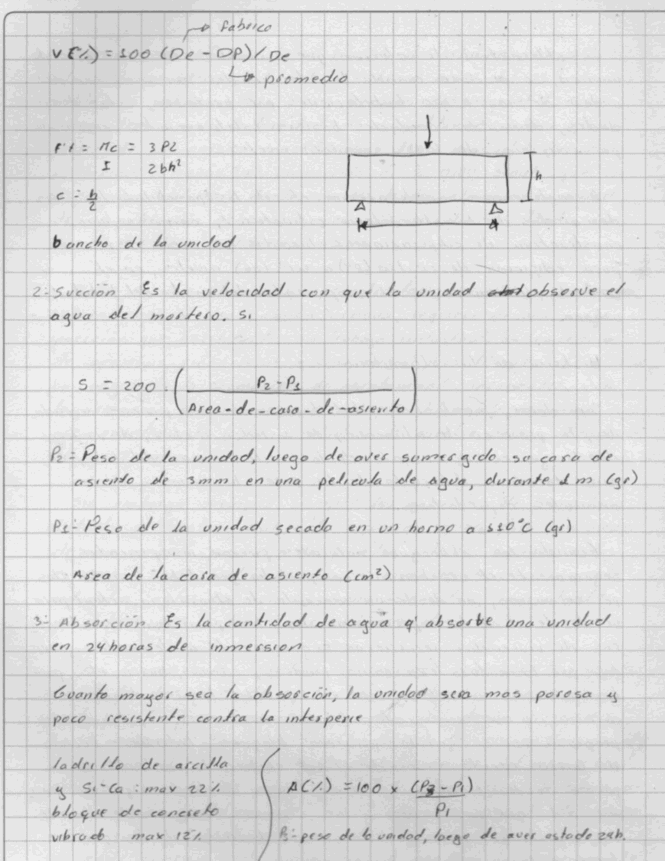 → fabrico
V(%) = 100 (De - DP) / De
→ promedio
f't = Mc = 3PL
I 2bh²
c = h
2
h
b ancho de la unidad
2- Succión Es la velocidad con que la unidad absorve el
agua del mortero. Si
S = 200 . ( P2 - P1
Area-de-cara-de-asiento )
P2 = Peso de la unidad, luego de aver sumergido su cara de
asiento de 3mm en una pelicula de agua, durante 1 m (gr)
P1 = Peso de la unidad secado en un horno a 110°C (gr)
Area de la cara de asiento (cm²)
3- Absorción Es la cantidad de agua q' absorbe una unidad
en 24 horas de inmersion
Cuanto mayor sea la absorción, la unidad sera mas porosa y
poco resistente contra la intesperie
ladrillo de arcilla
y Si-Ca : max 22%
bloque de concreto
vibrado max 12%
A(%) = 100 x (P3 - P1)
P1
P3: peso de la unidad, luego de aver estado 24h.